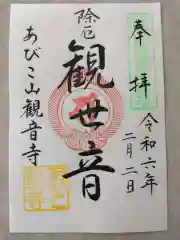 奉拝
令和六年
二月二日
除厄
観世音
あびこ山観音寺